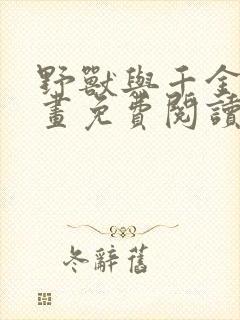 野獸與千金
畫免費閱讀
冬辭舊